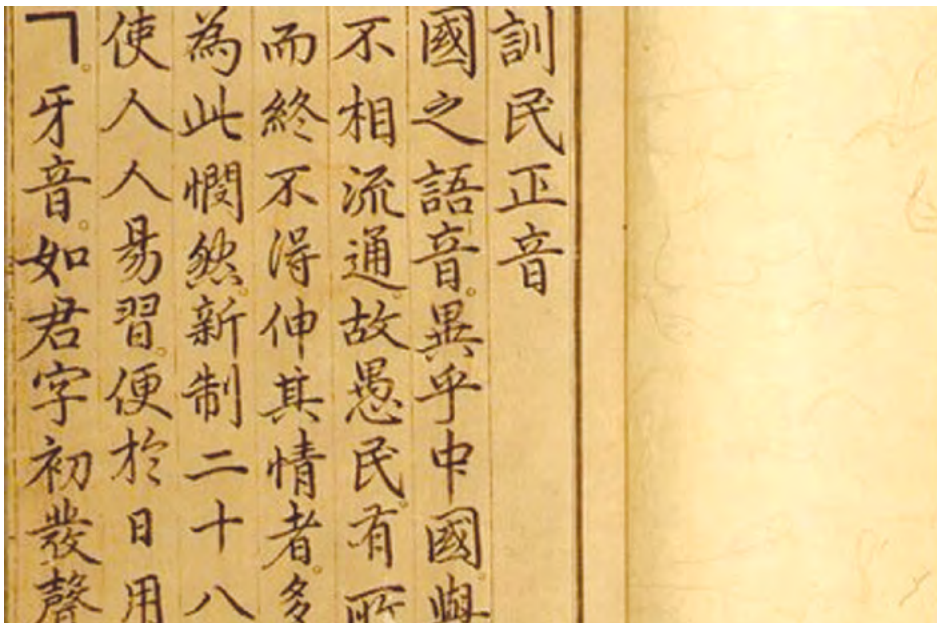 訓民正音
國之語音。異乎中國。與
不相流通。故愚民。有所
而終不得伸其情者。多
為此憫然。新制二十八
使人人易習。便於日用
ㄱ。牙音。如君字初發聲